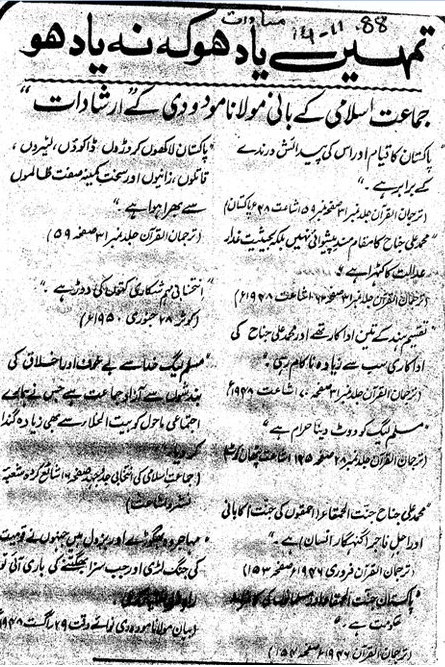 مساوات 14-11-88
تمہیں یاد ہو کہ نہ یاد ہو
جماعت اسلامی کے بانی مولانا مودودی کے "ارشادات"
پاکستان کا قیام اور اس کی پیدائش درندے
کے برابر ہے۔"
(ترجمان القرآن جلد نمبر ۳۱ صفحہ نمبر ۵۹ اشاعت ۴۸ء پاکستان)
"محمد علی جناح کا مقام مسند پیشوائی نہیں بلکہ بحیثیت غدار
عدالت کا کٹہرا ہے۔
(ترجمان القرآن جلد نمبر ۳۱ صفحہ اشاعت ۱۹۴۸ء)
تقسیم ہند کے تین اداکار تھے اور محمد علی جناح کی
اداکاری سب سے زیادہ ناکام رہی۔"
(ترجمان القرآن جلد نمبر ۳۱ صفحہ ۷۰ اشاعت ۱۹۴۸ء)
"مسلم لیگ کو ووٹ دینا حرام ہے"
(ترجمان القرآن جلد نمبر ۲۸ صفحہ ۱۲۵ اشاعت پٹھان کوٹ)
"محمد علی جناح جنت الحمقاء (احمقوں کی جنت) کا بانی
اور اجل فاجر (گنہگار انسان) ہے۔"
(ترجمان القرآن فروری ۱۹۴۶ء صفحہ ۱۵۳)
"پاکستان جنت الحمقاء اور مسلمانوں کی کافرانہ
حکومت ہے۔"
(ترجمان القرآن ۱۹۴۶ء صفحہ ۱۵۴)
"پاکستان لاکھوں کروڑوں، ڈاکوؤں، لٹیروں،
قاتلوں، زانیوں اور سخت کمینہ صفت ظالموں
سے بھرا ہوا ہے۔"
(ترجمان القرآن جلد نمبر ۳۱ صفحہ ۵۹)
"انتخابی مہم شکاری کتوں کی دوڑ ہے۔"
(کوثر ۲۸ جنوری ۱۹۵۰ء)
"مسلم لیگ خدا سے بے خوف اور اخلاق کی
بندشوں سے آزاد جماعت ہے جس نے ہمارے
اجتماعی ماحول کو بیت الخلاء سے بھی زیادہ گندا
کر دیا۔"
(جماعت اسلامی کی انتخابی جدوجہد صفحہ ۶ شائع کردہ شعبہ
نشر و اشاعت)
"مہاجر وہ بھگوڑے اور بزدل ہیں جنہوں نے قومیت
کی جنگ لڑی اور جب سزا بھگتنے کی باری آئی تو
راہ فرار اختیار
(بیان مولانا مودودی نوائے وقت ۲۹ اگست ۱۹۴۸ء